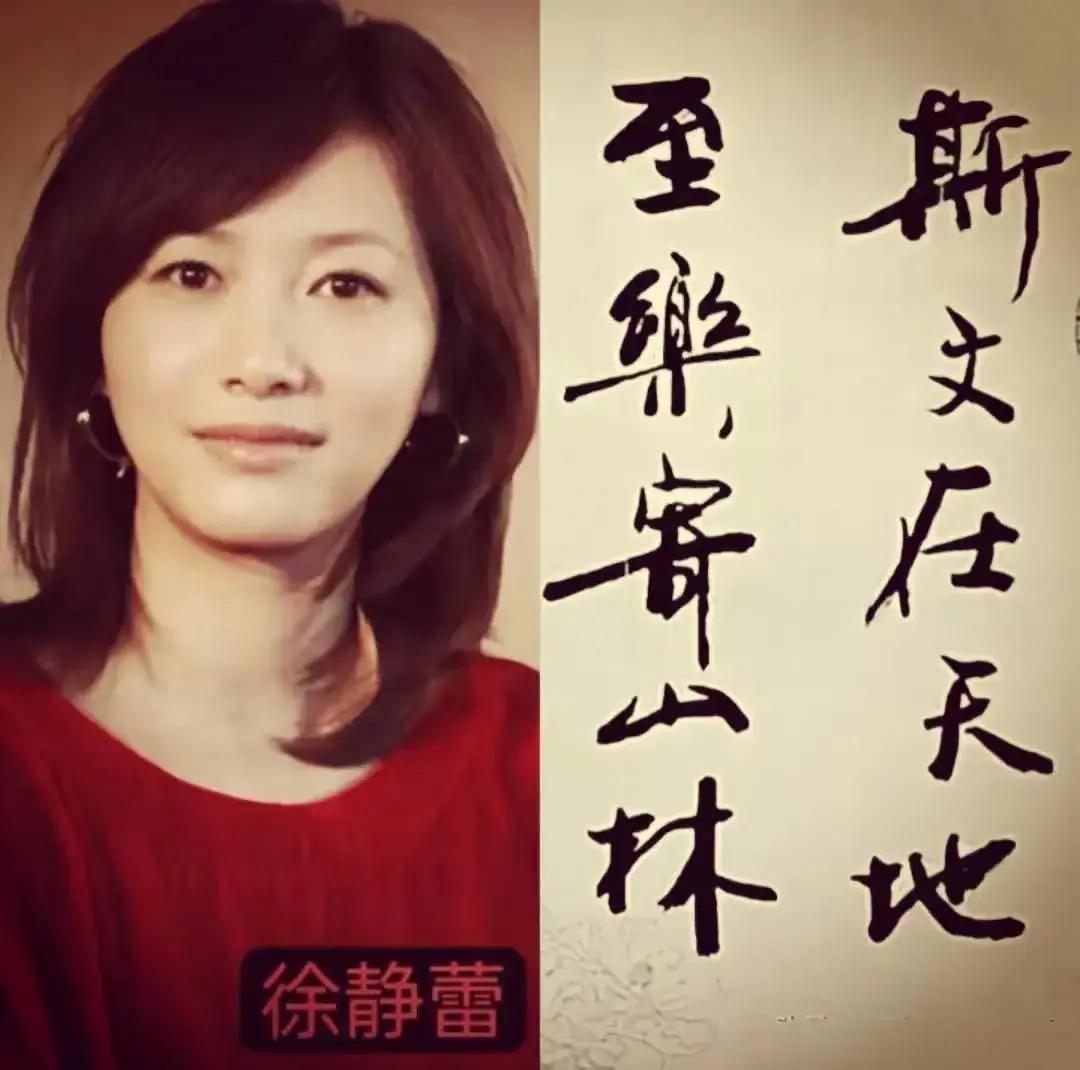 斯文在天地
至樂寄山林
徐静蕾